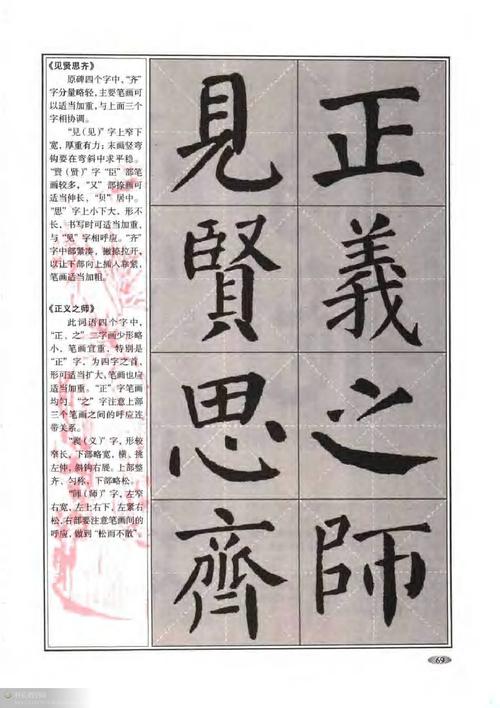 《见贤思齐》
原碑四个字中，“齐”
字分量略轻，主要笔画可
以适当加重，与上面三个
字相协调。
“見（见）”字上窄下
宽，厚重有力；末画竖弯
钩要在弯斜中求平稳。
“賢（贤）”字“臣”部笔
画较多，“又”部捺画可
适当伸长，“贝”居中。
“思”字上小下大，形不
长，书写时可适当加重，
与“见”字相呼应。“齐”
字中部紧凑，撇捺拉开，
以让下部向上插入靠紧，
笔画适当加粗。
《正义之师》
此词语四个字中，
“正、之”二字画少形略
小，笔画宜重，特别是
“正”字，为四字之首，
形可适当扩大，笔画也应
适当加重。“正”字笔画
均匀，“之”字注意上部
三个笔画之间的呼应连
带关系。
“義（义）”字，形较
窄长，下部略宽，横、挑
左伸，斜钩右展。上部整
齐、匀称，下部略松。
“師（师）”字，左窄
右宽，左上右下，左紧右
松，右部要注意笔画间的
呼应，做到“松而不散”。
見賢思齊
正義之師
69